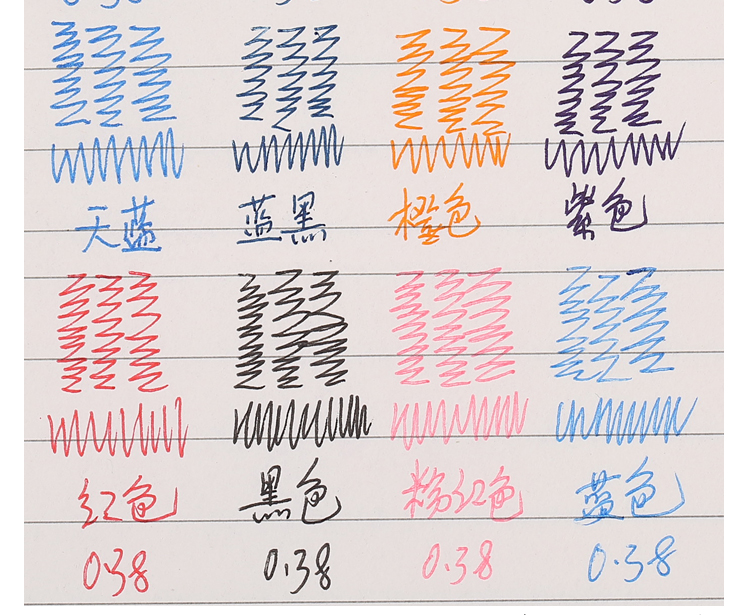 天蓝 蓝黑 橙色 紫色
红色 黑色 粉红色 蓝色
0.38 0.38 0.38 0.38